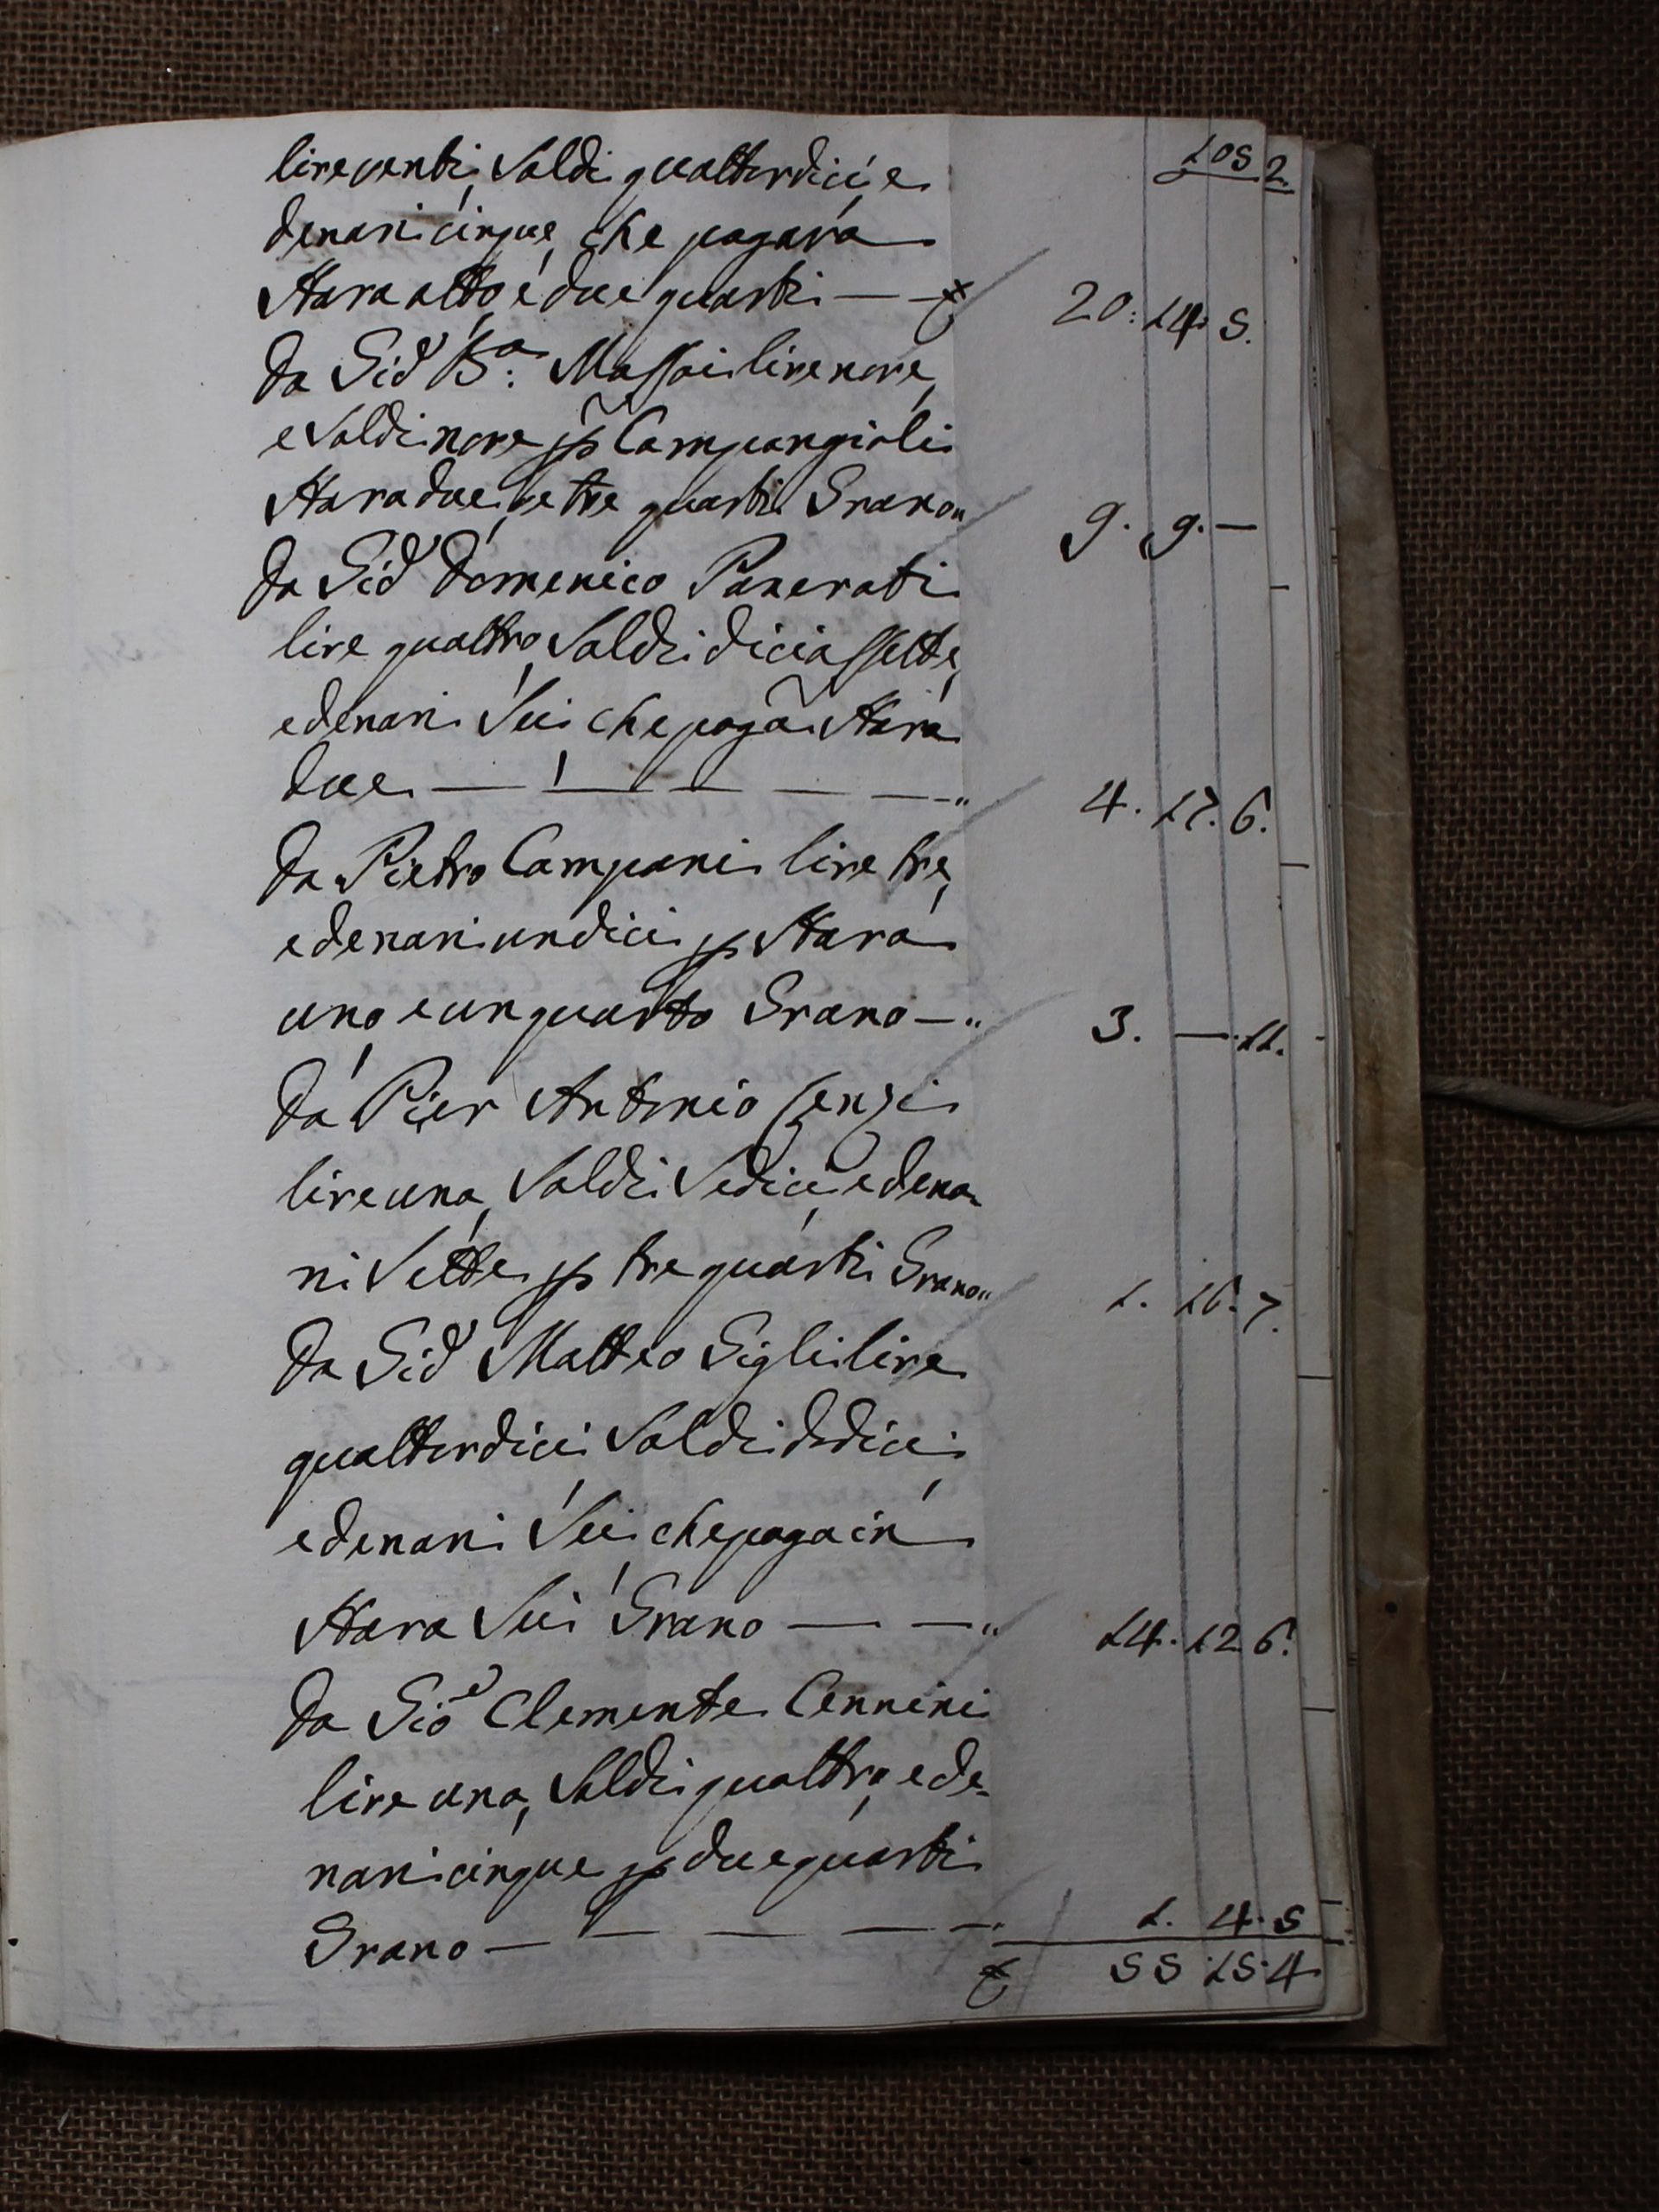 1052.
lire venti, soldi quattordici, e
denari cinque, che pagàra
stara otto, e due quarti — £ 20: 14. 5.
Da Gio: Ba: Massai lire nove,
e soldi nove p Campangioli
stara due, e tre quarti Grano „ 9. 9. —
Da Gio: Domenico Panerati
lire quattro, soldi diciassette,
e denari sei, che pagã stara
due — — — — — „ 4. 17. 6.
Da Pietro Campani lire tre,
e denari undici p stara
uno, e un quarto Grano — „ 3. — 11.
Da Pier Antonio Cenzi
lire una, soldi sedici, e dena-
ni sette p tre quarti Grano „ 1. 16. 7.
Da Gio: Matteo Gigli lire
quattordici, soldi dodici,
e denari sei, che paga in
stara sei Grano — — „ 14. 12. 6.
Da Gio: Clemente Cennini
lire una, soldi quattro, e de-
nari cinque p due quarti
Grano — — — — — „ 1. 4. 5
£ 55. 15. 4